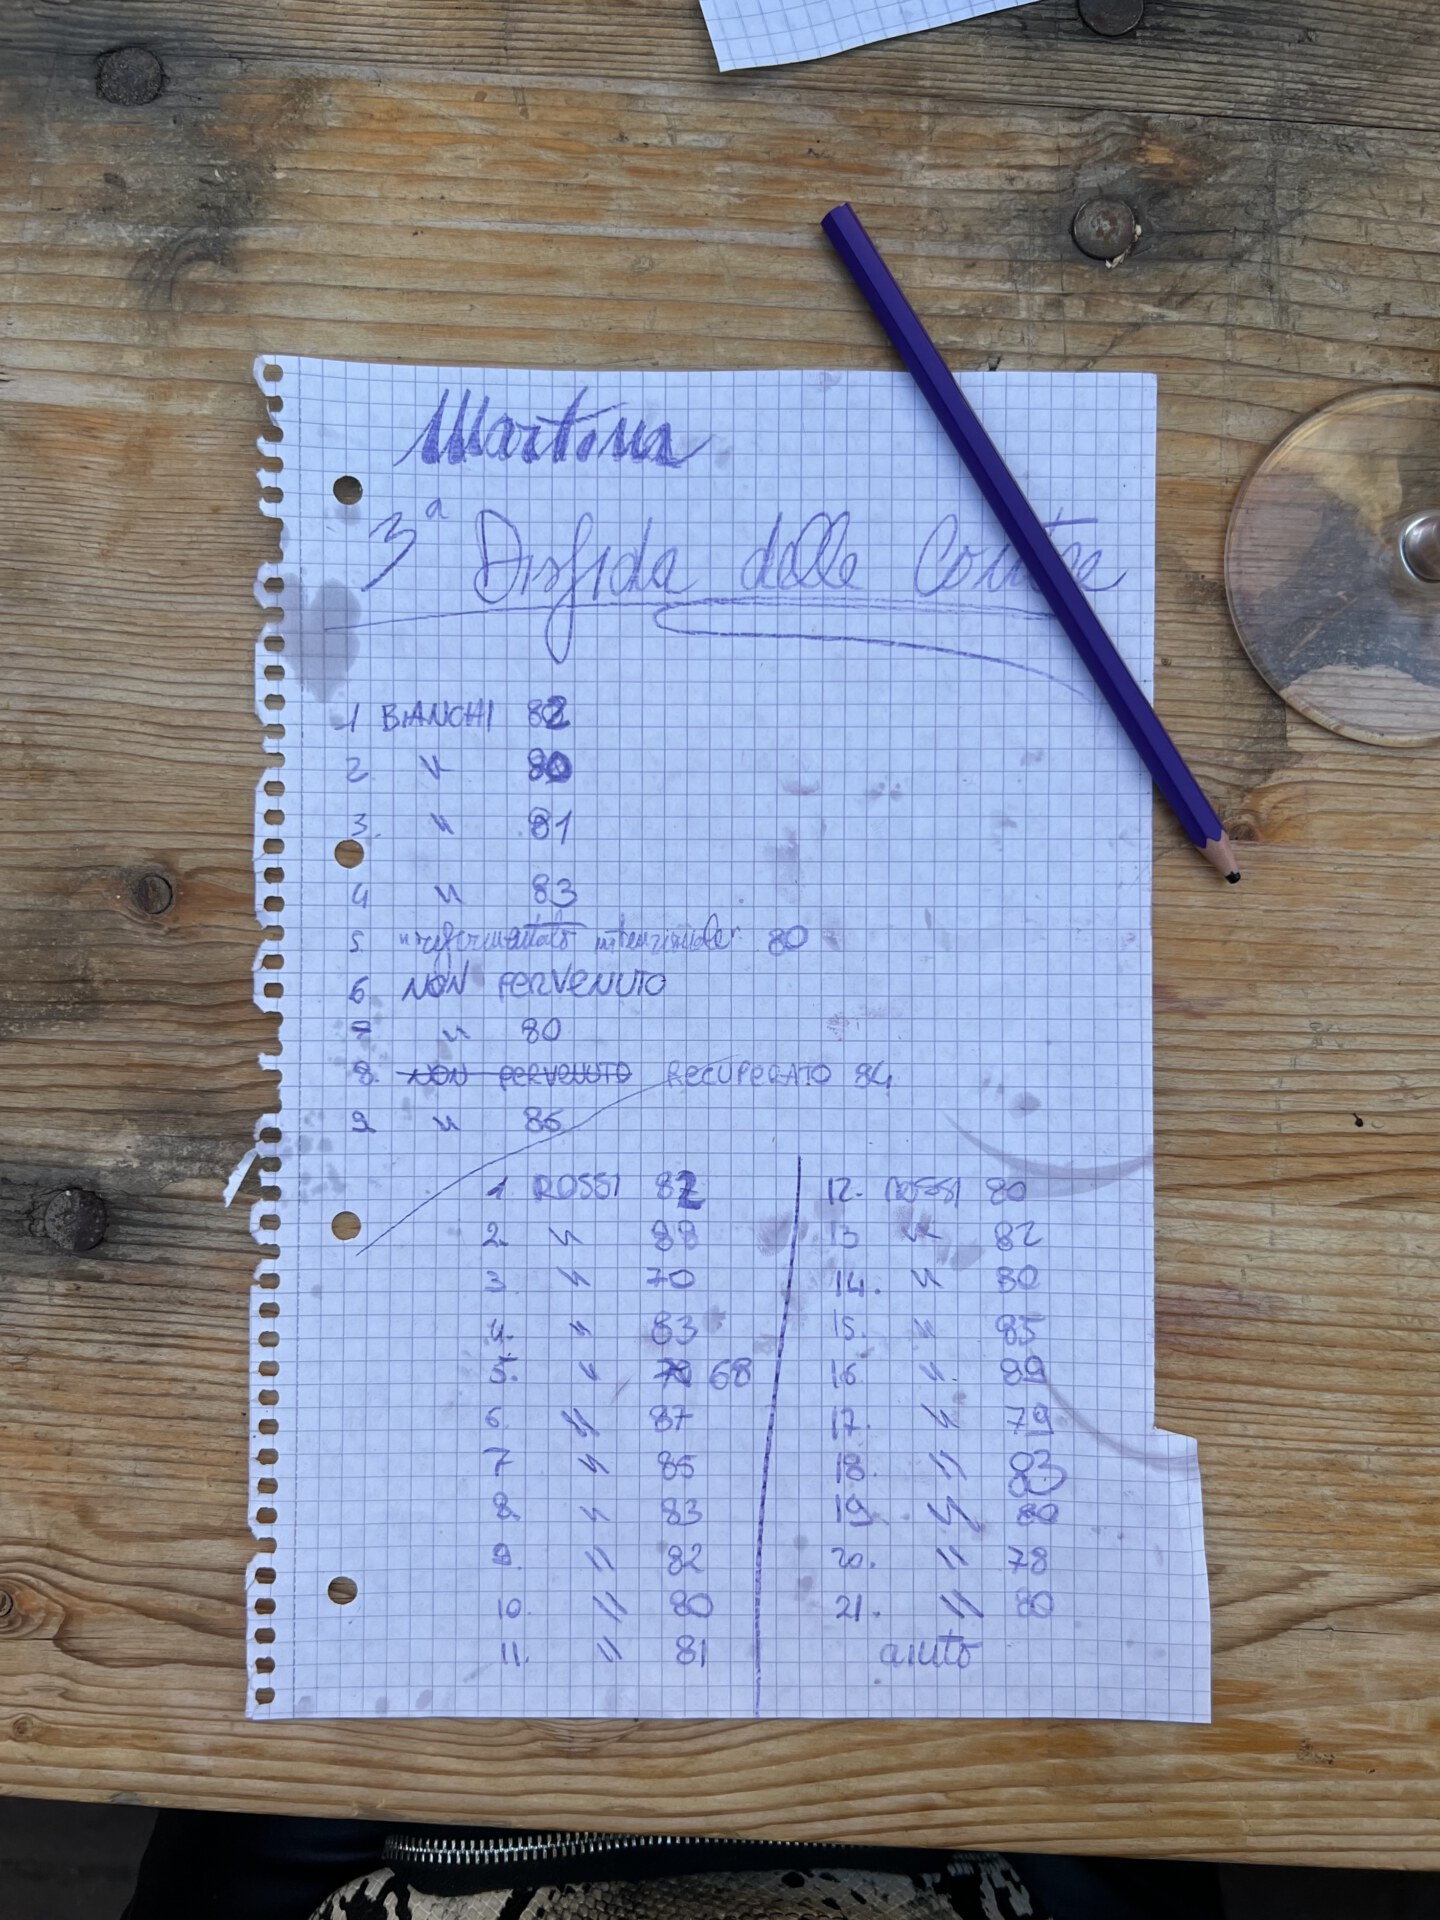 Martina
3ª Disfida delle
1 BIANCHI 82
2 " 80
3. " 81
4 " 83
5. " 80
6 NON PERVENUTO
7 " 80
8. NON PERVENUTO RECUPERATO 84
9 " 86
1 ROSSI 82
2. " 88
3. " 70
4. " 83
5. " 70 68
6. " 87
7 " 85
8 " 83
9. " 82
10. " 80
11. " 81
12. ROSSI 80
13 " 82
14. " 80
15. " 85
16 " 89
17. " 79
18. " 83
19. " 80
20. " 78
21. " 80
aiuto